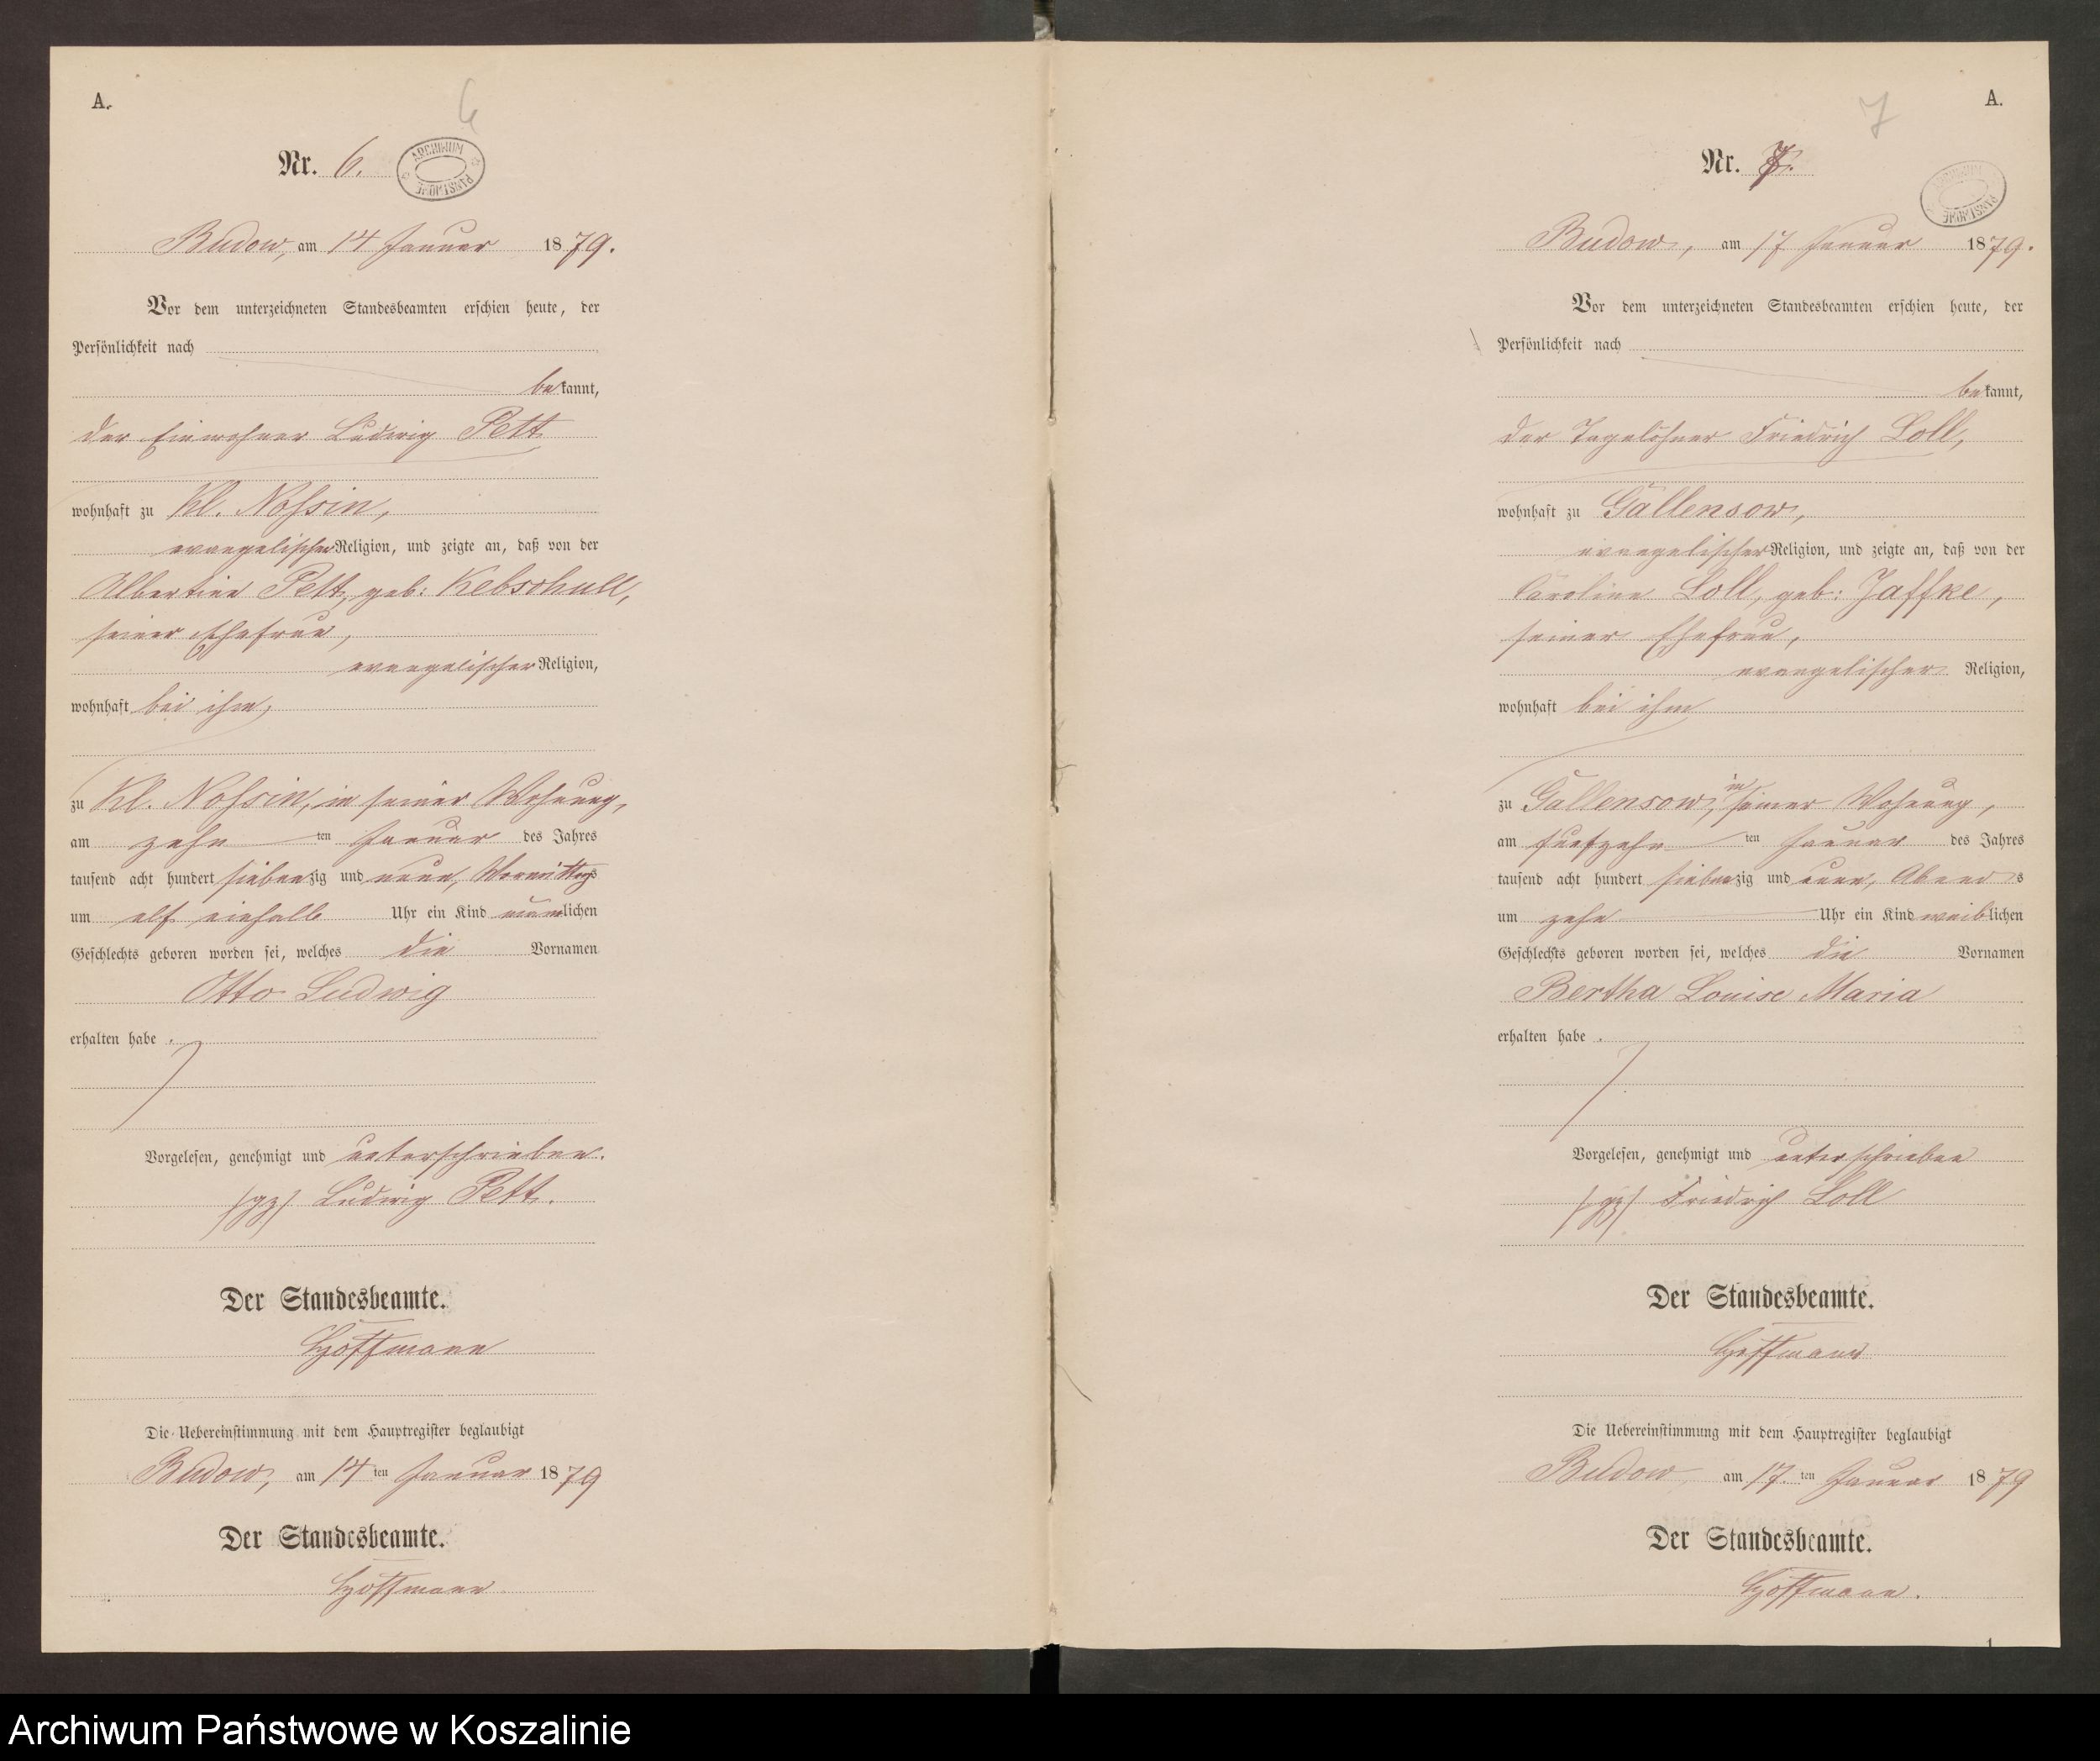 A.
6
Nr. 6.
ARCHIWUM PAŃSTWOWE
Budow, am 14 Januar 1879.
Vor dem unterzeichneten Standesbeamten erschien heute, der
Persönlichkeit nach
bekannt,
der Einwohner Ludwig Pett
wohnhaft zu Kl. Nossin,
evangelischer Religion, und zeigte an, daß von der
Albertine Pett, geb: Kebschull,
seiner Ehefrau,
evangelischer Religion,
wohnhaft bei ihm,
zu Kl. Nossin, in seiner Wohnung,
am zehnten Januar des Jahres
tausend acht hundert siebenzig und neun, Vormittags
um elf einhalb Uhr ein Kind männlichen
Geschlechts geboren worden sei, welches die Vornamen
Otto Ludwig
erhalten habe.
Vorgelesen, genehmigt und unterschrieben.
/gz/ Ludwig Pett.
Der Standesbeamte.
Hoffmann
Die Uebereinstimmung mit dem Hauptregister beglaubigt
Budow, am 14ten Januar 1879
Der Standesbeamte.
Hoffmann
7
A.
Nr. 7.
ARCHIWUM PAŃSTWOWE
Budow, am 17 Januar 1879.
Vor dem unterzeichneten Standesbeamten erschien heute, der
Persönlichkeit nach
bekannt,
der Tagelöhner Friedrich Loll,
wohnhaft zu Gallensow,
evangelischer Religion, und zeigte an, daß von der
Caroline Loll, geb: Jaffke,
seiner Ehefrau,
evangelischer Religion,
wohnhaft bei ihm
zu Gallensow, in seiner Wohnung,
am funfzehnten Januar des Jahres
tausend acht hundert siebenzig und neun, Abends
um zehn Uhr ein Kind weiblichen
Geschlechts geboren worden sei, welches die Vornamen
Bertha Louise Maria
erhalten habe.
Vorgelesen, genehmigt und unterschrieben
/gz/ Friedrich Loll
Der Standesbeamte.
Hoffmann
Die Uebereinstimmung mit dem Hauptregister beglaubigt
Budow, am 17.ten Januar 1879
Der Standesbeamte.
Hoffmann.
Archiwum Państwowe w Koszalinie